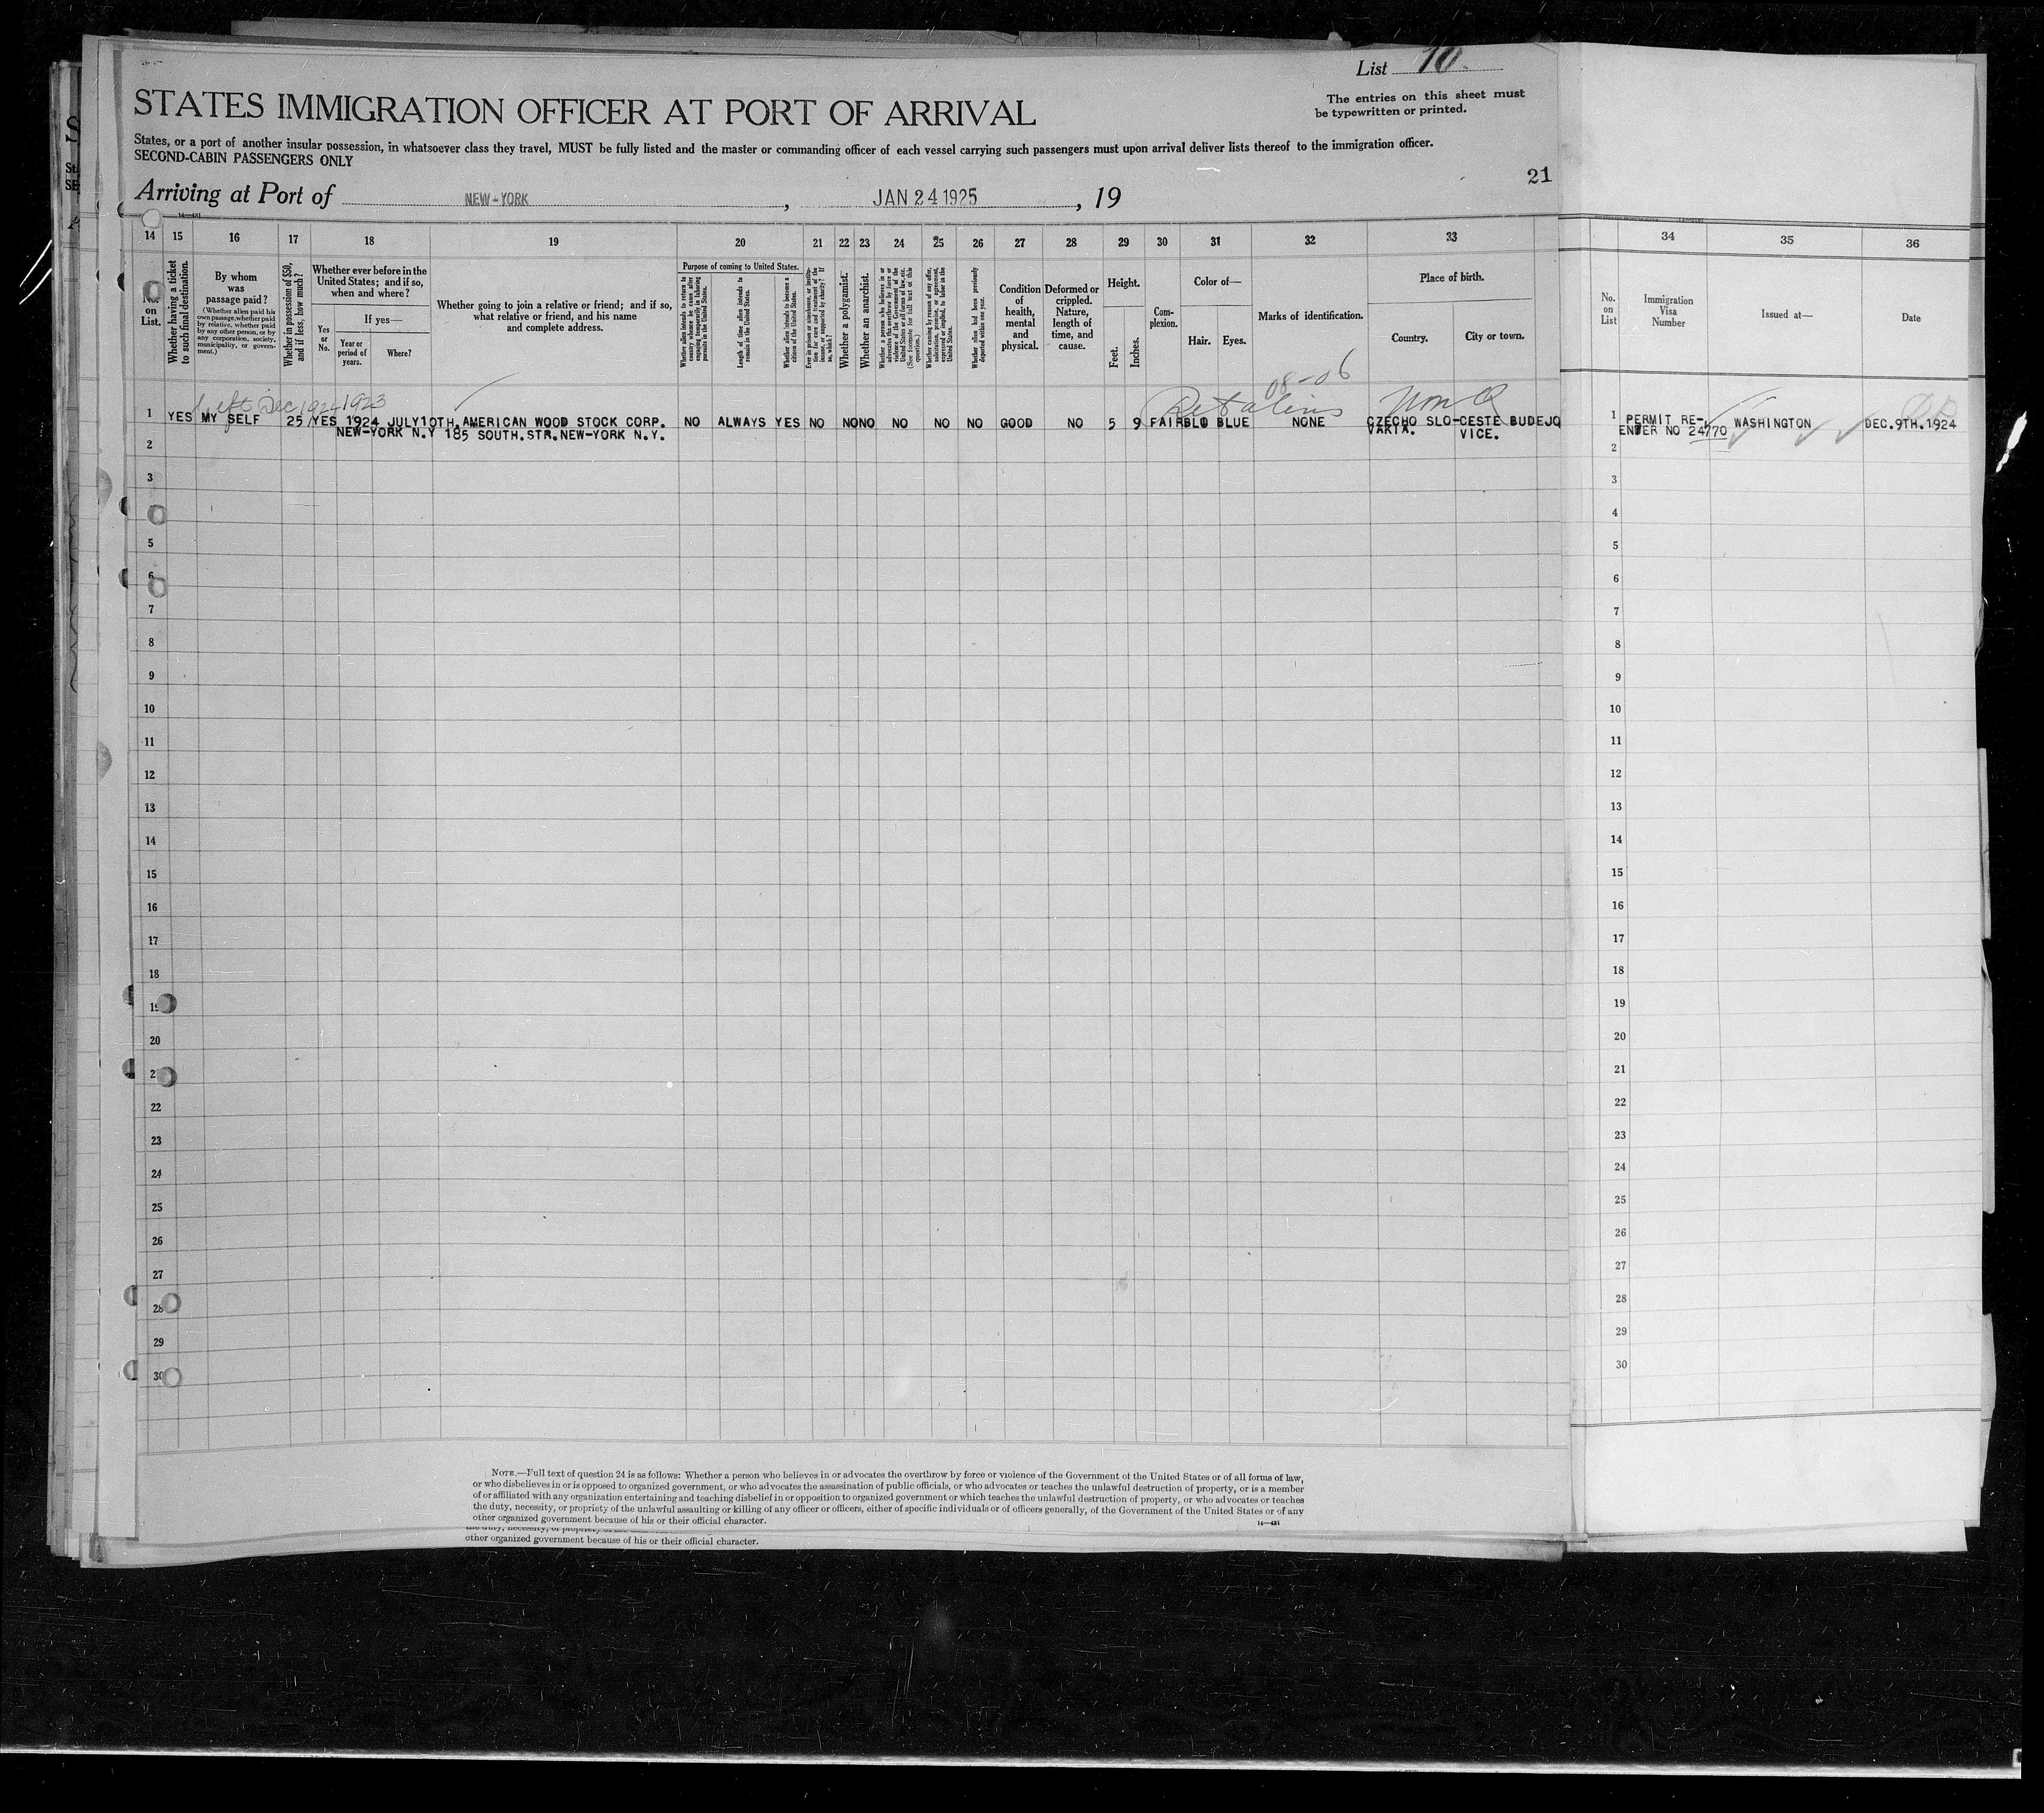 List 10.
The entries on this sheet must
be typewritten or printed.
STATES IMMIGRATION OFFICER AT PORT OF ARRIVAL
States, or a port of another insular possession, in whatsoever class they travel, MUST be fully listed and the master or commanding officer of each vessel carrying such passengers must upon arrival deliver lists thereof to the immigration officer.
SECOND-CABIN PASSENGERS ONLY
21
Arriving at Port of NEW-YORK, JAN 24 1925, 19
14—431
14 15 16 17 18 19 20 21 22 23 24 25 26 27 28 29 30 31 32 33 34 35 36
No. on List.
Whether having a ticket to such final destination.
By whom was passage paid?
(Whether alien paid his own passage, whether paid by relative, whether paid by any other person, or by any corporation, society, municipality, or government.)
Whether in possession of $50, and if less, how much?
Whether ever before in the United States; and if so, when and where?
Yes or No.
If yes—
Year or period of years.
Where?
Whether going to join a relative or friend; and if so, what relative or friend, and his name and complete address.
Purpose of coming to United States.
Whether alien intends to return to country whence he came after engaging temporarily in laboring pursuits in the United States.
Length of time alien intends to remain in the United States.
Whether alien intends to become a citizen of the United States.
Ever in prison or almshouse, or institution for care and treatment of the insane, or supported by charity? If so, which?
Whether a polygamist.
Whether an anarchist.
Whether a person who believes in or advocates the overthrow by force or violence of the Government of the United States or all forms of law, etc. (See footnote for full text of this question.)
Whether coming by reason of any offer, solicitation, promise, or agreement, expressed or implied, to labor in the United States.
Whether alien had been previously deported within one year.
Condition of health, mental and physical.
Deformed or crippled. Nature, length of time, and cause.
Height.
Feet. Inches.
Complexion.
Color of—
Hair. Eyes.
Marks of identification.
Place of birth.
Country. City or town.
No. on List
Immigration Visa Number
Issued at—
Date
Left Dec 1924 1923
08-06
1 YES MY SELF 25 YES 1924 JULY10TH. AMERICAN WOOD STOCK CORP. NO ALWAYS YES NO NO NO NO NO NO GOOD NO 5 9 FAIR BLD BLUE NONE CZECHO SLO- CESTE BUDEJO 1 PERMIT RE- WASHINGTON DEC.9TH.1924
NEW-YORK N.Y 185 SOUTH.STR.NEW-YORK N.Y. VAKIA. VICE. ENTER NO 24770
2 2
3 3
4
5 5
6 6
7 7
8 8
9 9
10 10
11 11
12 12
13 13
14 14
15 15
16 16
17 17
18 18
19 19
20 20
21 21
22 22
23 23
24 24
25 25
26 26
27 27
28 28
29 29
30 30
NOTE.—Full text of question 24 is as follows: Whether a person who believes in or advocates the overthrow by force or violence of the Government of the United States or of all forms of law,
or who disbelieves in or is opposed to organized government, or who advocates the assassination of public officials, or who advocates or teaches the unlawful destruction of property, or is a member
of or affiliated with any organization entertaining and teaching disbelief in or opposition to organized government or which teaches the unlawful destruction of property, or who advocates or teaches
the duty, necessity, or propriety of the unlawful assaulting or killing of any officer or officers, either of specific individuals or of officers generally, of the Government of the United States or of any
other organized government because of his or their official character.
14—431
other organized government because of his or their official character.